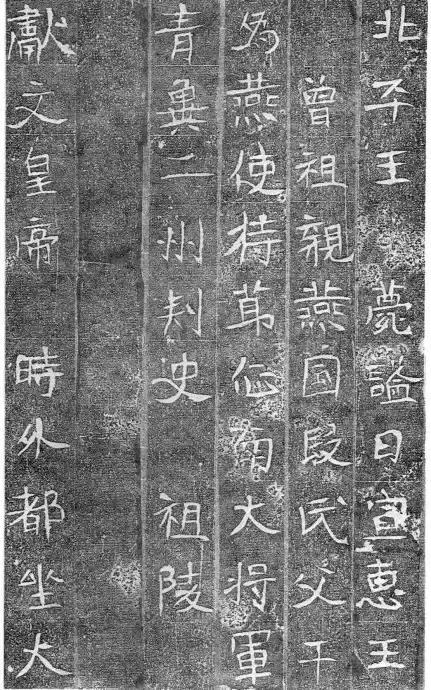 北平王　薨謚曰宣惠王
曾祖親燕国段氏父干
為燕使持莭征南大将軍
青冀二州刾史　祖陵
獻文皇帝　時外都坐大